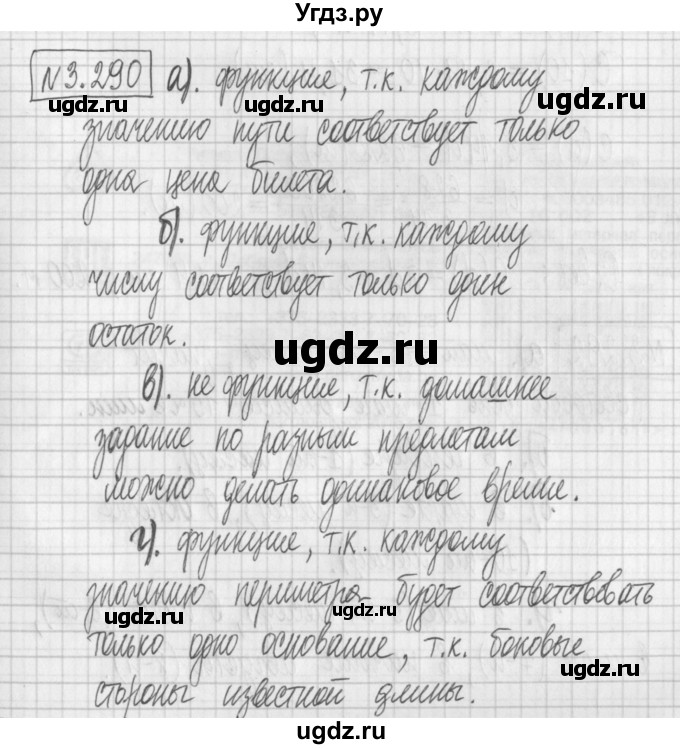 Угдз.ру
№3.290 а). функция, т.к. каждому
ugdz.ru ugdz.ru
значению пути соответствует только
одна цена билета.
б). функция, т.к. каждому
числу соответствует только один
остаток.
ugdz.ru
в). не функция, т.к. домашнее
задание по разным предметам
можно делать одинаковое время.
г). функция, т.к. каждому
значению периметра будет соответствовать
ugdz.ru ugdz.ru
только одно основание, т.к. боковые
стороны известной длины.
ugdz.ru